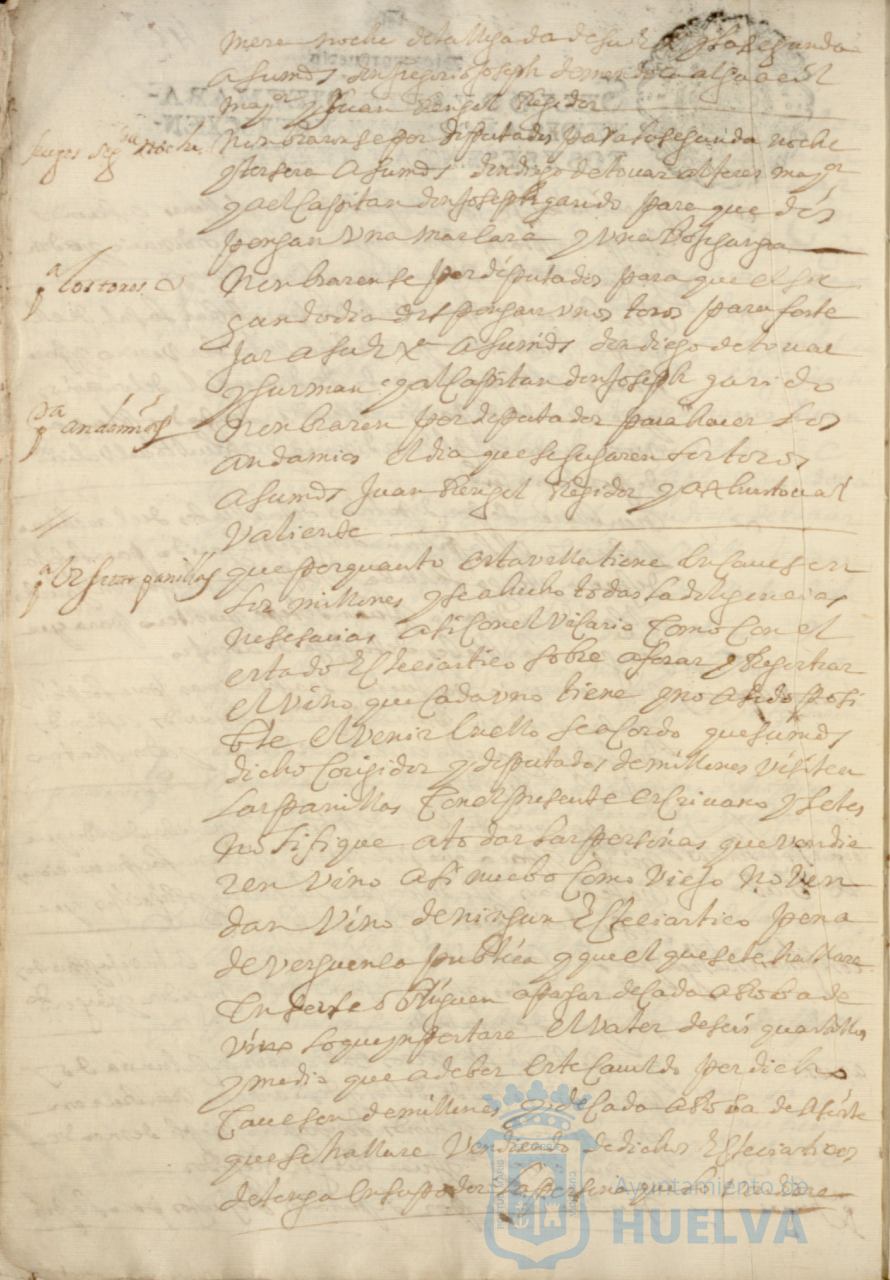 mera noche de la llegada de su Exª y la segunda
a sus mds don gregorio Joseph de mendoca alguacil
mayor y Juan Rengel Regidor
fuegos segda noche
Nonbraronse por diputados para la segunda noche
y tersera a sus mds don diego de touar alferes mayor
y a el Capitan don Joseph garido para que dis
pongan una mascara y una
pª los toros
Nonbraronse por diputados para que el se
gundo dia dispongan unos toros para feste
jar a su Exª a sus mds don diego de touar
y gusman y al Capitan don Joseph garido
pª andamios
Nonbraron por diputados para haser los
andamios el dia que se jugaren los toros
a sus mds Juan Rengel Regidor y a
Valiente
que por quanto esta villa tiene encaues en
los millones y se a hecho todas la diligencias
nesesarias asi con el Vicario Como Con el
estado Eclesiastico sobre aforar y Registrar
el vino que cada uno tiene y no a sido posi
ble el venir en ello se acordo que sus mds
dicho Corigidor y diputados de millones visiten
las panillas Con el presente escriuano y se les
notifique a todas las personas que vendie
ren vino asi nuebo Como viejo no ven
dan vino de ningun Eclesiastico pena
de verguensa publica y que el que se le hallare
en ser se obliguen a pagar de cada aroba de
vino lo que ynportare el valor de seis quartillos
y medio que a de aber este Cauildo por dicho
Caueson de millones y de Cada aroba de aseite
que se hallare vendiendo de dichos Eclesiasticos
detenga en su poder la persona que lo
Ayuntamiento de
HUELVA